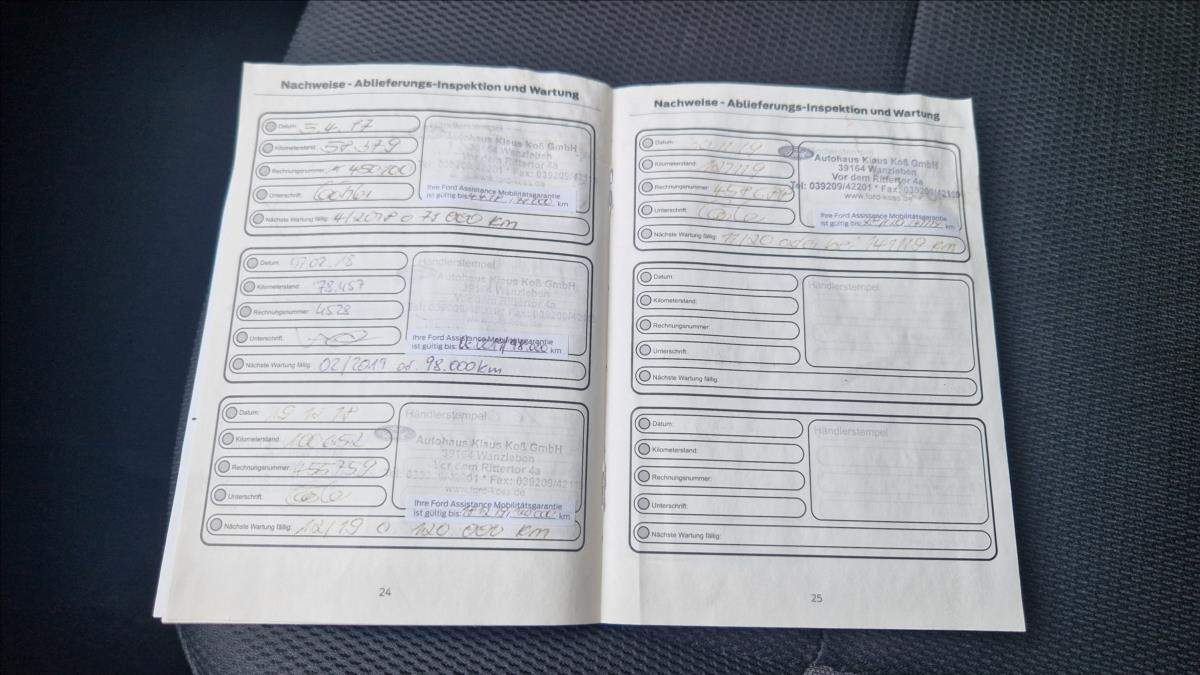 Nachweise - Ablieferungs-Inspektion und Wartung
Datum: 5.4.17
Kilometerstand: 58379
Rechnungsnummer: 450100
Unterschrift:
Nächste Wartung fällig: 4/2018 o 78 000 km
Händlerstempel
Autohaus Klaus Koß GmbH
39164 Wanzleben
Vor dem Rittertor 4a
Fax: 039209/421
Ihre Ford Assistance Mobilitätsgarantie
ist gültig bis: km
Datum: 02.18
Kilometerstand: 78.457
Rechnungsnummer: 4528
Unterschrift:
Nächste Wartung fällig: 02/2019 od. 98.000 km
Händlerstempel
Autohaus Klaus Koß GmbH
39164 Wanzleben
Vor dem Rittertor 4a
Fax: 039209/42
Ihre Ford Assistance Mobilitätsgarantie
ist gültig bis: 98.000 km
Datum:
Kilometerstand: 100652
Rechnungsnummer: 455759
Unterschrift:
Nächste Wartung fällig: 12/19 o 120.000 km
Händlerstempel
Autohaus Klaus Koß GmbH
39164 Wanzleben
Vor dem Rittertor 4a
Fax: 039209/421
www.ford-koss.de
Ihre Ford Assistance Mobilitätsgarantie
ist gültig bis: km
24
Nachweise - Ablieferungs-Inspektion und Wartung
Datum:
Kilometerstand:
Rechnungsnummer:
Unterschrift:
Nächste Wartung fällig: 11/20 oder 141119 km
Händlerstempel
Autohaus Klaus Koß GmbH
39164 Wanzleben
Vor dem Rittertor 4a
Tel: 039209/42201 * Fax: 039209/42109
www.ford-koss.de
Ihre Ford Assistance Mobilitätsgarantie
ist gültig bis: km
Datum:
Kilometerstand:
Rechnungsnummer:
Unterschrift:
Nächste Wartung fällig:
Händlerstempel
Datum:
Kilometerstand:
Rechnungsnummer:
Unterschrift:
Nächste Wartung fällig:
Händlerstempel
25